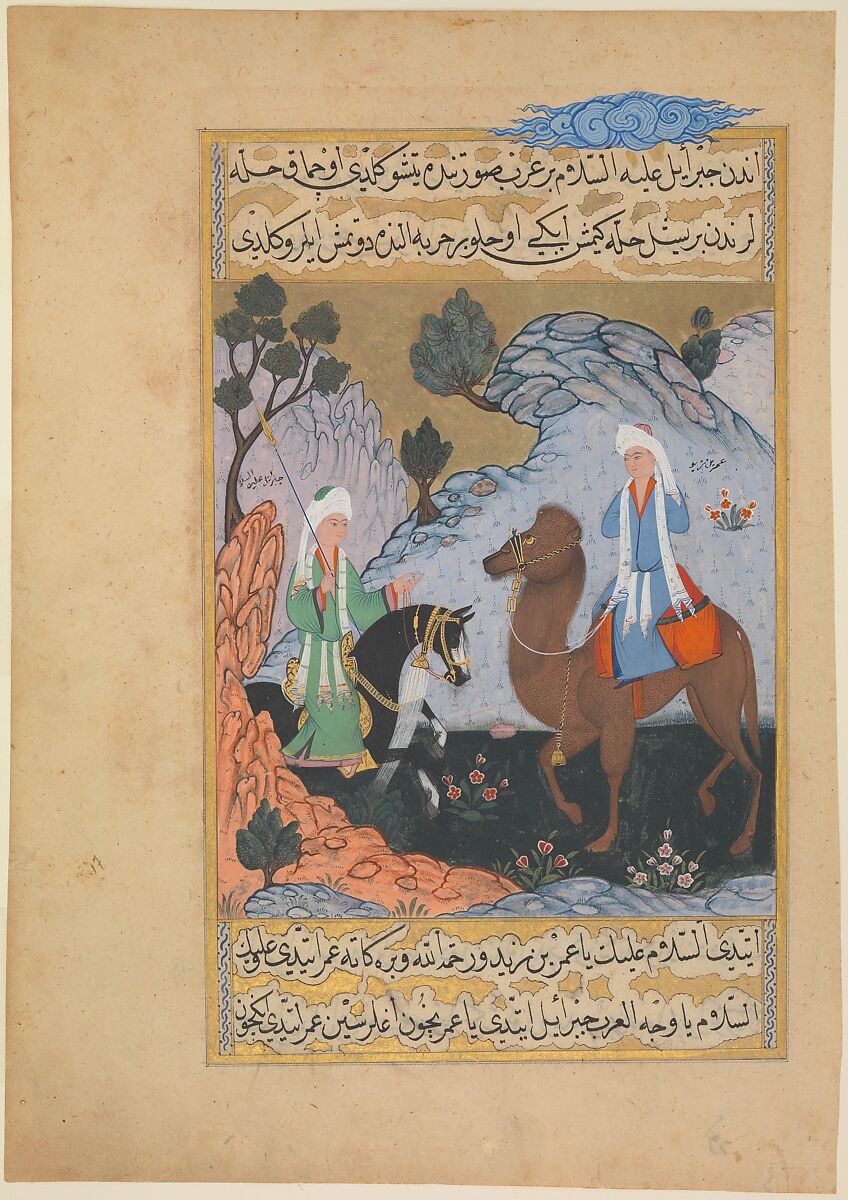 اندن جبرائیل علیه السلام بر عرب صورتنده يتشو كلدى اوچماق حله
لرندن بر یشل حله كیمش ایكی اوجلو بر حربه النده دوتمش ایلرو كلدی
جبرائیل علیه السلام
عمر بن زید
ایتدی السلام علیك یا عمر بن زید و رحمة الله و بركاته عمر ایتدی و علیك
السلام یا وجه العرب جبرائیل ایتدی یا عمر نچون اغلرسین عمر ایتدی نیچون